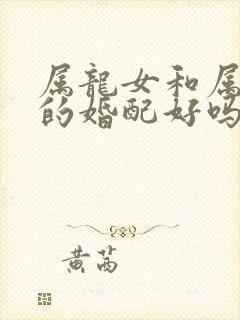 属龍女和属
的婚配好吗
黄芮